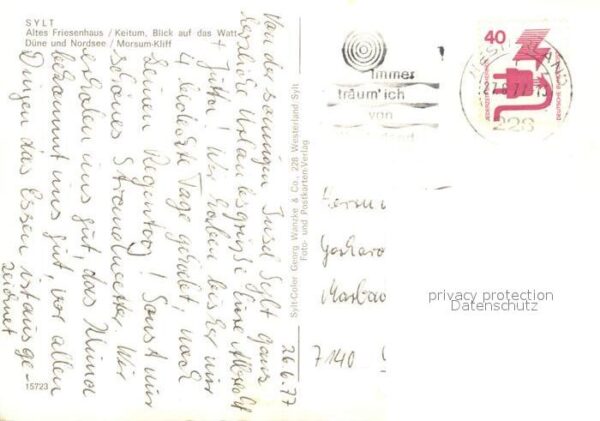 SYLT
Altes Friesenhaus / Keitum, Blick auf das Watt
Düne und Nordsee / Morsum-Kliff
Von der sonnigen Insel Sylt ganz
herzliche Urlaubsgrüße Eure Albrecht
+ Jutta! Wir haben bisher nur
4 bedeckte Tage gehabt, noch
keinen Regentag! Sonst nur
schönes Strandwetter. Wir
erholen uns gut, das Klima
bekommt uns gut, vor allen
Dingen das Essen ist ausge-
zeichnet
26.6.77
15723
Sylt-Color Georg Wanzke & Co., 228 Westerland-Sylt
Foto- und Postkarten-Verlag
immer
träum' ich
von
40
JEDERZEIT SICHERHEIT
DEUTSCHE BUNDESPOST
228
Herrn
Gerhard
Marbach
7140
privacy protection
Datenschutz